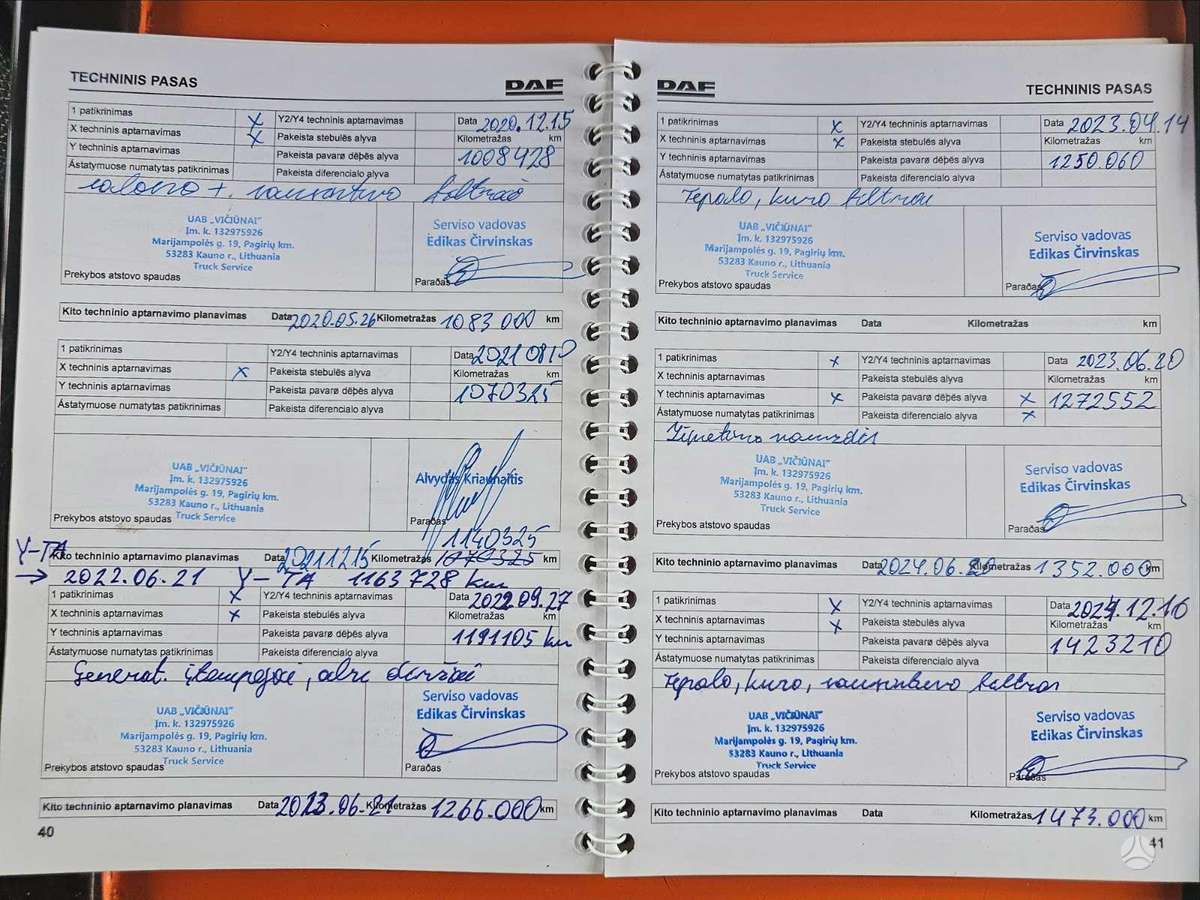 TECHNINIS PASAS
DAF
1 patikrinimas X Y2/Y4 techninis aptarnavimas Data 2020.12.15
X techninis aptarnavimas X Pakeista stebulės alyva Kilometražas km
Y techninis aptarnavimas Pakeista pavarø dëþës alyva 1008428
Ástatymuose numatytas patikrinimas Pakeista diferencialo alyva
UAB „VIČIŪNAI"
Įm. k. 132975926
Marijampolės g. 19, Pagirių km.
53283 Kauno r., Lithuania
Truck Service
Serviso vadovas
Edikas Čirvinskas
Prekybos atstovo spaudas Paraðas
Kito techninio aptarnavimo planavimas Data 2020.05.26 Kilometražas 1083 000 km
1 patikrinimas Y2/Y4 techninis aptarnavimas Data 20210810
X techninis aptarnavimas X Pakeista stebulės alyva Kilometražas km
Y techninis aptarnavimas Pakeista pavarø dëþës alyva 1070325
Ástatymuose numatytas patikrinimas Pakeista diferencialo alyva
UAB „VIČIŪNAI"
Įm. k. 132975926
Marijampolės g. 19, Pagirių km.
53283 Kauno r., Lithuania
Truck Service
Alvydas Kriaunaitis
Prekybos atstovo spaudas Paraðas
1140325
Y-TA Kito techninio aptarnavimo planavimas Data 20211215 Kilometražas 1070325 km
→ 2022.06.21 Y-TA 1163728 km
1 patikrinimas X Y2/Y4 techninis aptarnavimas Data 2022.09.27
X techninis aptarnavimas X Pakeista stebulės alyva Kilometražas km
Y techninis aptarnavimas Pakeista pavarø dëþës alyva 1191105 km
Ástatymuose numatytas patikrinimas Pakeista diferencialo alyva
Generat.
UAB „VIČIŪNAI"
Įm. k. 132975926
Marijampolės g. 19, Pagirių km.
53283 Kauno r., Lithuania
Truck Service
Serviso vadovas
Edikas Čirvinskas
Prekybos atstovo spaudas Paraðas
Kito techninio aptarnavimo planavimas Data 2023.06.21 Kilometražas 1266.000 km
40
DAF
TECHNINIS PASAS
1 patikrinimas X Y2/Y4 techninis aptarnavimas Data 2023.04.14
X techninis aptarnavimas X Pakeista stebulės alyva Kilometražas km
Y techninis aptarnavimas Pakeista pavarø dëþës alyva 1250.060
Ástatymuose numatytas patikrinimas Pakeista diferencialo alyva
Tepalo, kuro filtrai
UAB „VIČIŪNAI"
Įm. k. 132975926
Marijampolės g. 19, Pagirių km.
53283 Kauno r., Lithuania
Truck Service
Serviso vadovas
Edikas Čirvinskas
Prekybos atstovo spaudas Paraðas
Kito techninio aptarnavimo planavimas Data Kilometražas km
1 patikrinimas X Y2/Y4 techninis aptarnavimas Data 2023.06.20
X techninis aptarnavimas Pakeista stebulės alyva Kilometražas km
Y techninis aptarnavimas X Pakeista pavarø dëþës alyva X 1272552
Ástatymuose numatytas patikrinimas Pakeista diferencialo alyva X
UAB „VIČIŪNAI"
Įm. k. 132975926
Marijampolės g. 19, Pagirių km.
53283 Kauno r., Lithuania
Truck Service
Serviso vadovas
Edikas Čirvinskas
Prekybos atstovo spaudas Paraðas
Kito techninio aptarnavimo planavimas Data 2024.06.20 Kilometražas 1352.000 km
1 patikrinimas X Y2/Y4 techninis aptarnavimas Data 2024.12.16
X techninis aptarnavimas X Pakeista stebulės alyva Kilometražas km
Y techninis aptarnavimas Pakeista pavarø dëþës alyva 1423210
Ástatymuose numatytas patikrinimas Pakeista diferencialo alyva
Tepalo, kuro, filtrai
UAB „VIČIŪNAI"
Įm. k. 132975926
Marijampolės g. 19, Pagirių km.
53283 Kauno r., Lithuania
Truck Service
Serviso vadovas
Edikas Čirvinskas
Prekybos atstovo spaudas Paraðas
Kito techninio aptarnavimo planavimas Data Kilometražas 1473.000 km
41